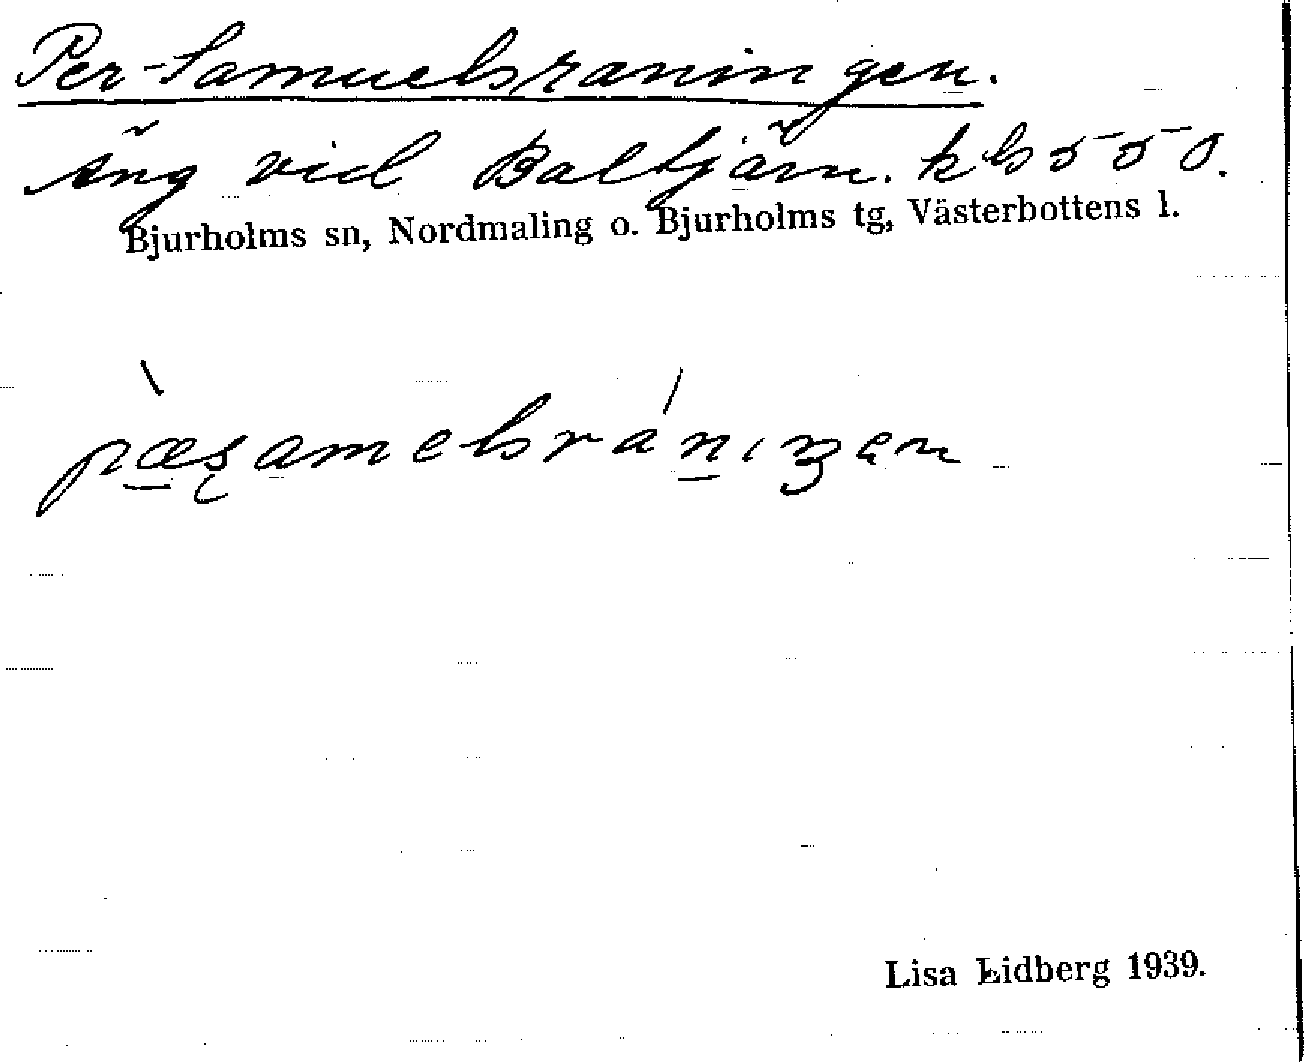 Per-Samuelsraningen.
Äng vid Baltjärn. kbs 550.
Bjurholms sn, Nordmaling o. Bjurholms tg, Västerbottens l.
Lisa Lidberg 1939.